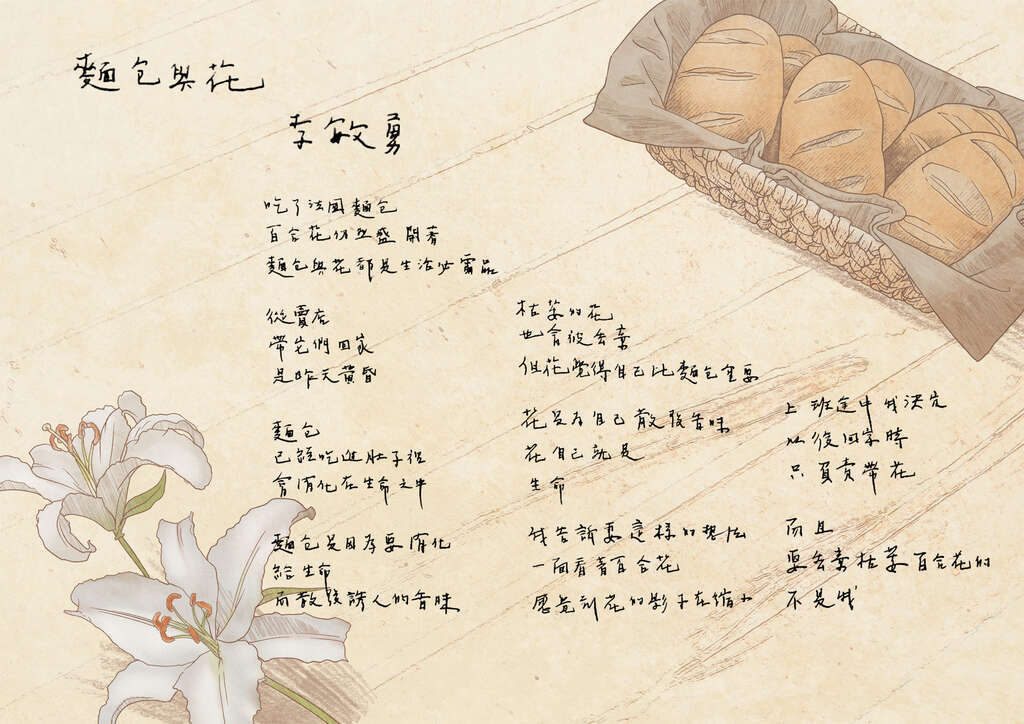 麵包與花
李敏勇
吃了法國麵包
百合花仍然盛開著
麵包與花都是生活必需品
從賣店
帶它們回家
是昨天黃昏
麵包
已經吃進肚子裡
會消化在生命之中
麵包是因為要消化
給生命
而散發誘人的香味
枯萎的花
也會被丟棄
但花覺得自己比麵包重要
花是為自己散發香味
花自己就是
生命
我告訴妻這樣的想法
一面看著百合花
感覺到花的影子在縮小
上班途中我決定
以後回家時
只負責帶花
而且
要丟棄枯萎百合花的
不是我